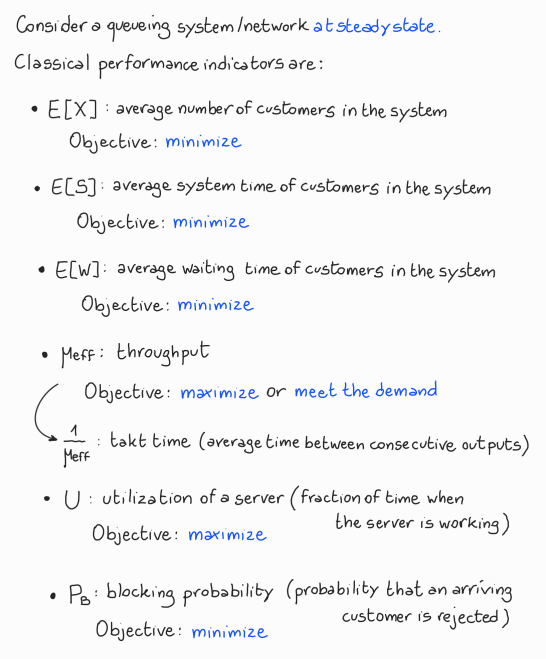 Consider a queueing system/network at steady state.
Classical performance indicators are:
• E[X] : average number of customers in the system
Objective: minimize
• E[S] : average system time of customers in the system
Objective: minimize
• E[W] : average waiting time of customers in the system
Objective: minimize
• μeff : throughput
Objective: maximize or meet the demand
1/μeff : takt time (average time between consecutive outputs)
• U : utilization of a server (fraction of time when
the server is working)
Objective: maximize
• PB : blocking probability (probability that an arriving
customer is rejected)
Objective: minimize